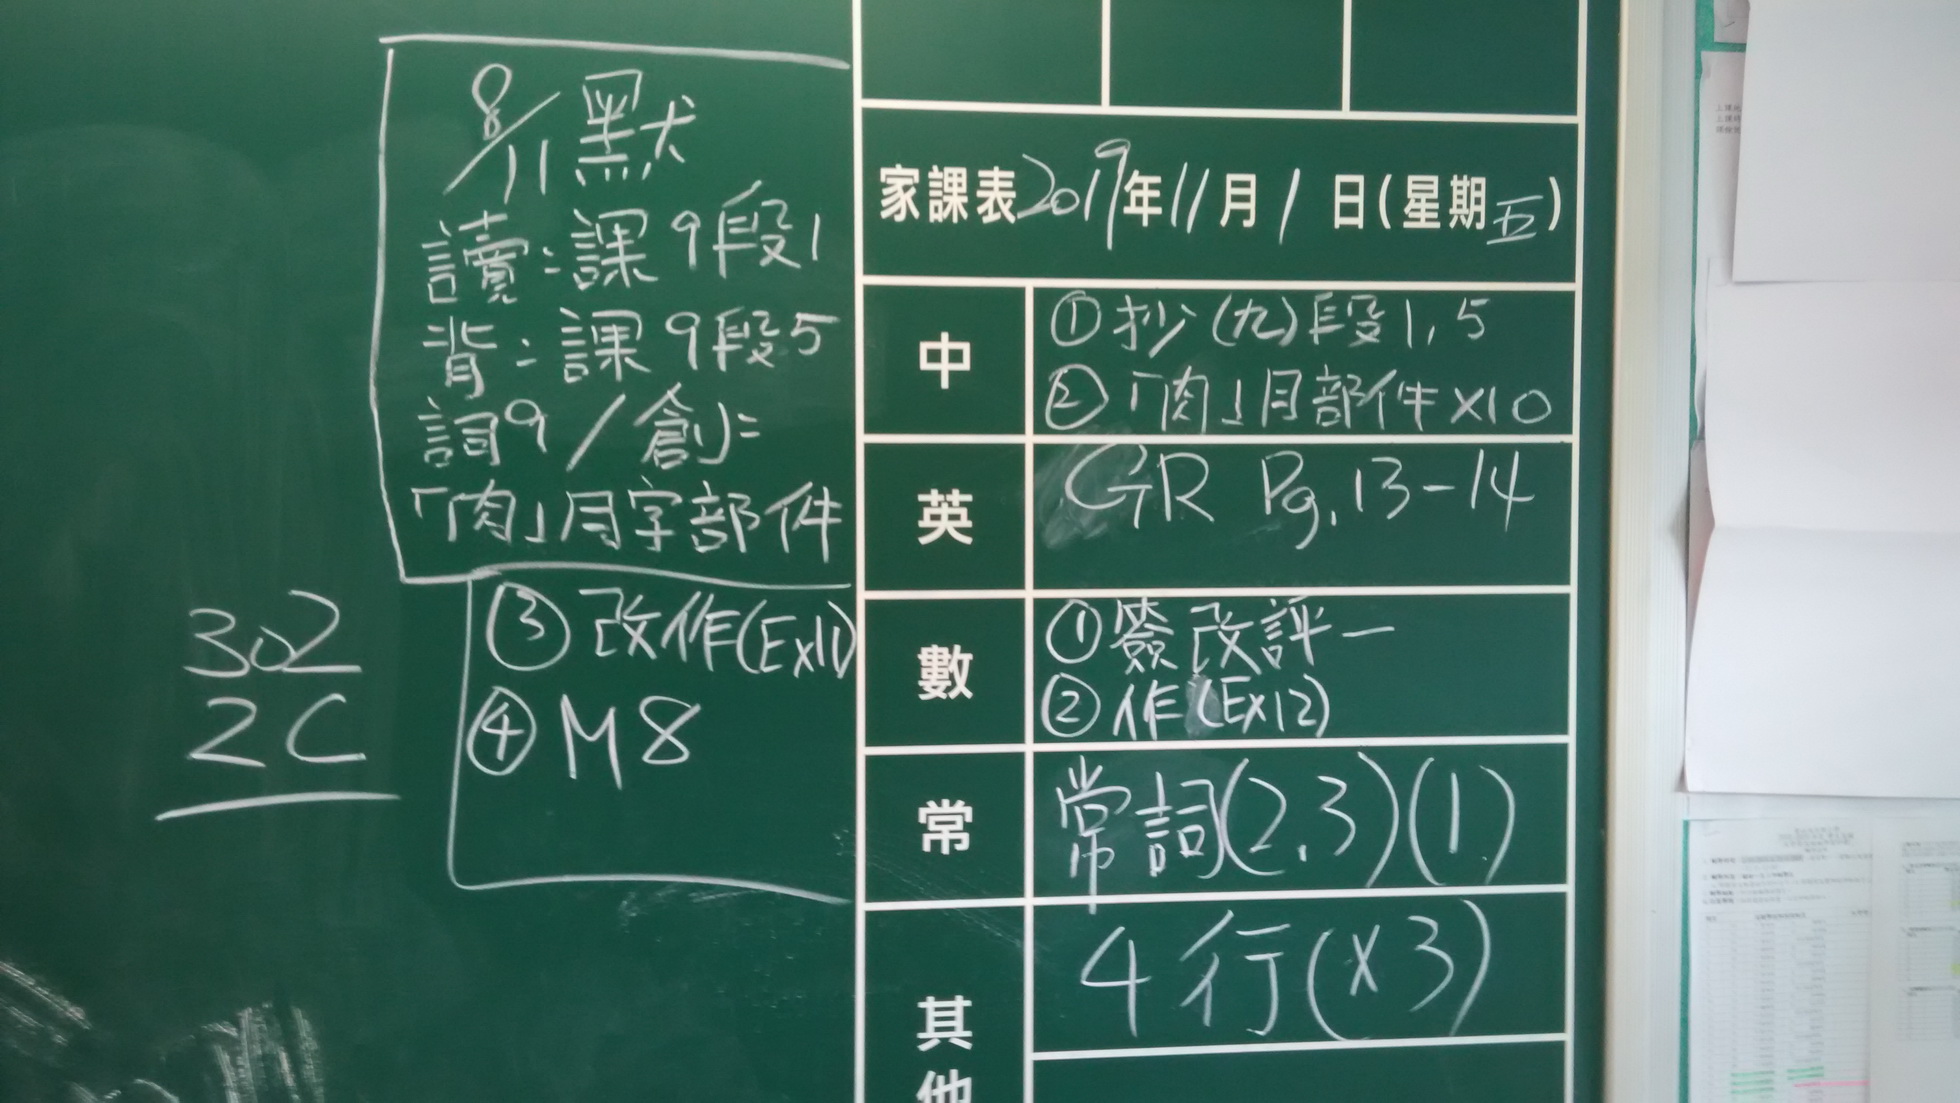 8/11 默
讀：課9段1
背：課9段5
詞9／創：
「肉」月字部件
③ 改作(Ex11)
④ M8
302
2C
家課表2019年11月1日(星期五)
中
① 抄(九)段1,5
② 「肉」月部件×10
英
GR Pg.13-14
數
① 簽改評一
② 作(Ex12)
常
常詞(2,3)(1)
其他
4行(×3)